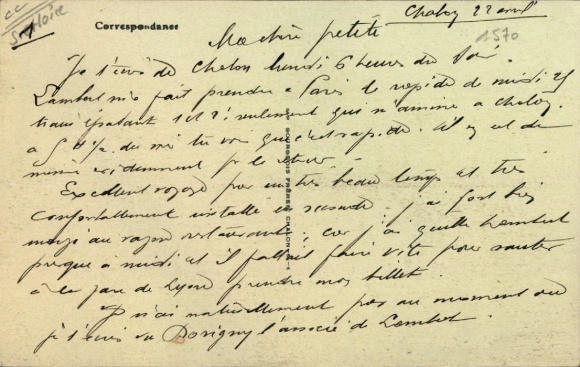 cc
S. et Loire
Correspondance
Chalon 22 avril
1570
Ma chère petite
Je t'écris de Chalon lundi 6 heures du soir.
Lambert m'a fait prendre à Paris le rapide de midi 25
train épatant 1 et 2 seulement qui m'amène à Chalon
à 5 h ½ du tu vois que c'est rapide. il y est de
même évidemment pr le retour.
Excellent voyage par un très beau temps et très
confortablement installé en seconde. j'ai fort bien
mangé au wagon restaurant; car j'ai quitté Lambert
presque à midi et il fallait faire vite pour sauter
à la gare de Lyon prendre mon billet.
Je n'ai naturellement pas au moment où
je t'écris vu Dorigny l'associé de Lambert.
BOURGEOIS FRÈRES, CHALON-S-S